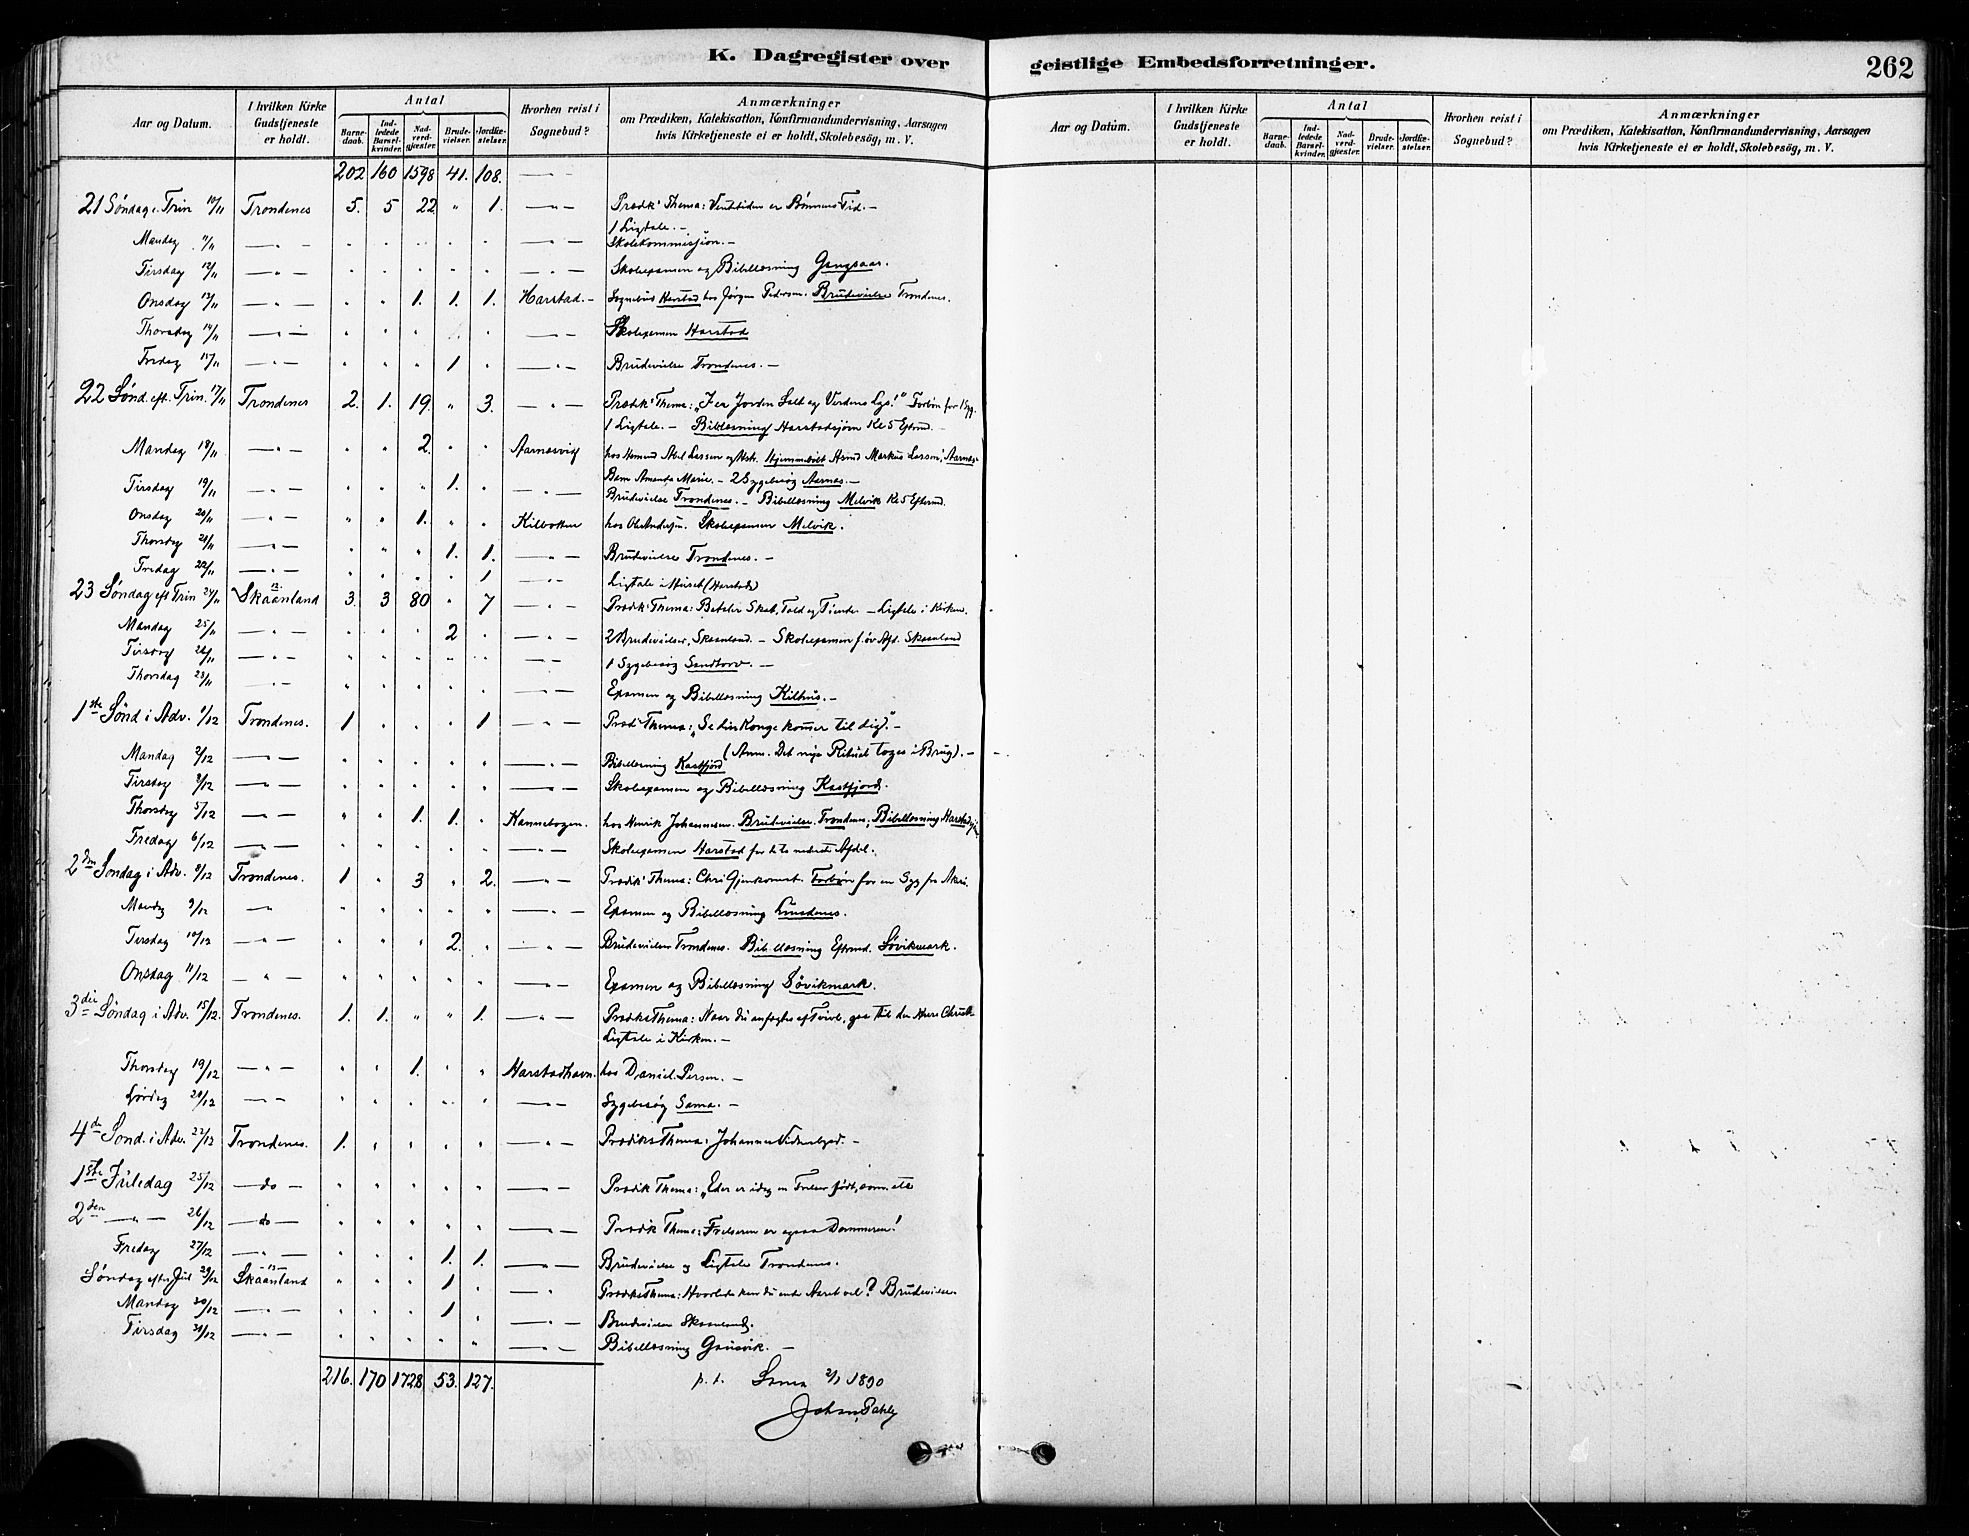 K. Dagregister over geistlige Embedsforretninger.
262
Aar og Datum. | I hvilken Kirke Gudstjeneste er holdt. | Antal | Barnedaab. | Indledede Barselkvinder. | Nadverdgjæster. | Brudevielser. | Jordfæstelser. | Hvorhen reist i Sognebud? | Anmærkninger om Prædiken, Katekisation, Konfirmandundervisning, Aarsagen hvis Kirketjeneste ei er holdt, Skolebesøg, m. V.
202 160 1598 41. 108. — " —
21 Søndag e. Trin 10/11 Trondenes 5. 5 22 " 1. — " — Prædik' Thema: Ventetiden er Bønnens Tid. —
1 Ligtale. —
Mandag 11/11 — " — Skolekommisjon. —
Tirsdag 12/11 — " — Skolexamen og Bibellæsning Gangsaas.
Onsdag 13/11 — " — 1. 1. 1. Harstad. — Sognebud Harstad hos Jørgen Pedersen. Brudevielse Trondenes.
Thorsdag 14/11 — " — Skolexamen Harstad
Fredag 15/11 — " — 1 — " — Brudevielse Trondenes. —
22 Sønd. eft. Trin. 17/11 Trondenes 2. 1. 19. " 3. — " — Prædik' Thema: "I er Jorden Salt og Verdens Lys!" Forbøn for 1 Syg.
1 Ligtale. — Bibellæsning Harstadsjøen Kl 5 Eftmd. —
Mandag 18/11 — " — 2. Aarnesvig hos Abel Larsen Hjemmedøbt Markus Larsen, Aarnes
Barn Amanda Marie. — 2 Sygebesøg Aarnes. —
Tirsdag 19/11 — " — 1. — " — Brudevielse Trondenes. — Bibellæsning Melvik Kl 5 Eftmd.
Onsdag 20/11 — " — 1. " Kilbotten hos Ole Andersen. Skolexamen Melvik.
Thorsdag 21/11 — " — 1. 1. — " — Brudevielse Trondenes. —
Fredag 22/11 — " — 1 — " — Ligtale i Huset (Harstad)
23 Søndag eft Trin 24/11 12. Skaanland 3. 3 80 " 7 — " — Prædik' Thema: Betaler Skat, Told og Tiende — Ligtale i Kirken.
Mandag 25/11 — " — 2 — " — 2 Brudevielser, Skaanland. — Skolexamen f. øv. Afd. Skaanland
Tirsdag 26/11 — " — 1 Sygebesøg Sandtorv. —
Thorsdag 28/11 — " — Examen og Bibellæsning Kilhus. —
1ste Sønd i Adv. 1/12 Trondenes. 1 1 — " — Præd' Thema: "Se din Konge kommer til dig". —
(Anm. Det nye Ritual toges i Brug). —
Mandag 2/12 — " — Bibellæsning Kasfjord
Tirsdag 3/12 — " — Skolexamen og Bibellæsning Kasfjord.
Thorsdag 5/12 — " — 1. 1. Kannebogen. hos Henrik Johannessen. Brudevielse. Trondenes; Bibellæsning Harstadsjøen
Fredag 6/12 — " — Skolexamen Harstad for de to nederste Afdel.
2den Søndag i Adv. 8/12 Trondenes. 1 " 3 " 2. — " — Prædik' Thema: Chri Gjenkomst. Forbøn for en Syg
Mandag 9/12 — " — Examen og Bibellæsning
Tirsdag 10/12 — " — 2. — " — Brudevielser Trondenes. Bibellæsning Eftmd. Søvikmark.
Onsdag 11/12 — " — Examen og Bibellæsning Søvikmark.
3die Søndag i Adv. 15/12. Trondenes. 1. 1. " " 1. — " — Prædiks Thema: Naar du anfægtes af Tvivl, gaa til den Herre Christ.
Ligtale i Kirken. —
Thorsdag 19/12 — " — 1. Harstadhavn. hos Daniel Persen. —
Lørdag 20/12 — " — Sygebesøg Sama. —
4de Sønd. i Adv. 22/12 Trondenes. 1. — " — Prædiks Thema: Johannes Vidnesbyrd. —
1ste Juledag 25/12 — do — Prædik Thema: "Eder er idag en Frelser født, som etc
2den — " — 26/12 — do — Prædik Thema: Frelseren er ogsaa Dommeren!
Fredag 27/12 — " — 1. 1. — " — Brudevielse og Ligtale Trondenes.
Søndag efter Jul 29/12 13 Skaanland 1 — " Prædiks Thema: Hvorledes kan du ende Aaret vel? Brudevielse
Mandag 30/12 — " — 1 — " — Brudevielse Skaanland.
Tirsdag 31/12 — " — Bibellæsning Gausvik. —
216. 170 1728 53. 127. p. t. Sama 2/1 1890
Aar og Datum. | I hvilken Kirke Gudstjeneste er holdt. | Antal | Barnedaab. | Indledede Barselkvinder. | Nadverdgjæster. | Brudevielser. | Jordfæstelser. | Hvorhen reist i Sognebud? | Anmærkninger om Prædiken, Katekisation, Konfirmandundervisning, Aarsagen hvis Kirketjeneste ei er holdt, Skolebesøg, m. V.